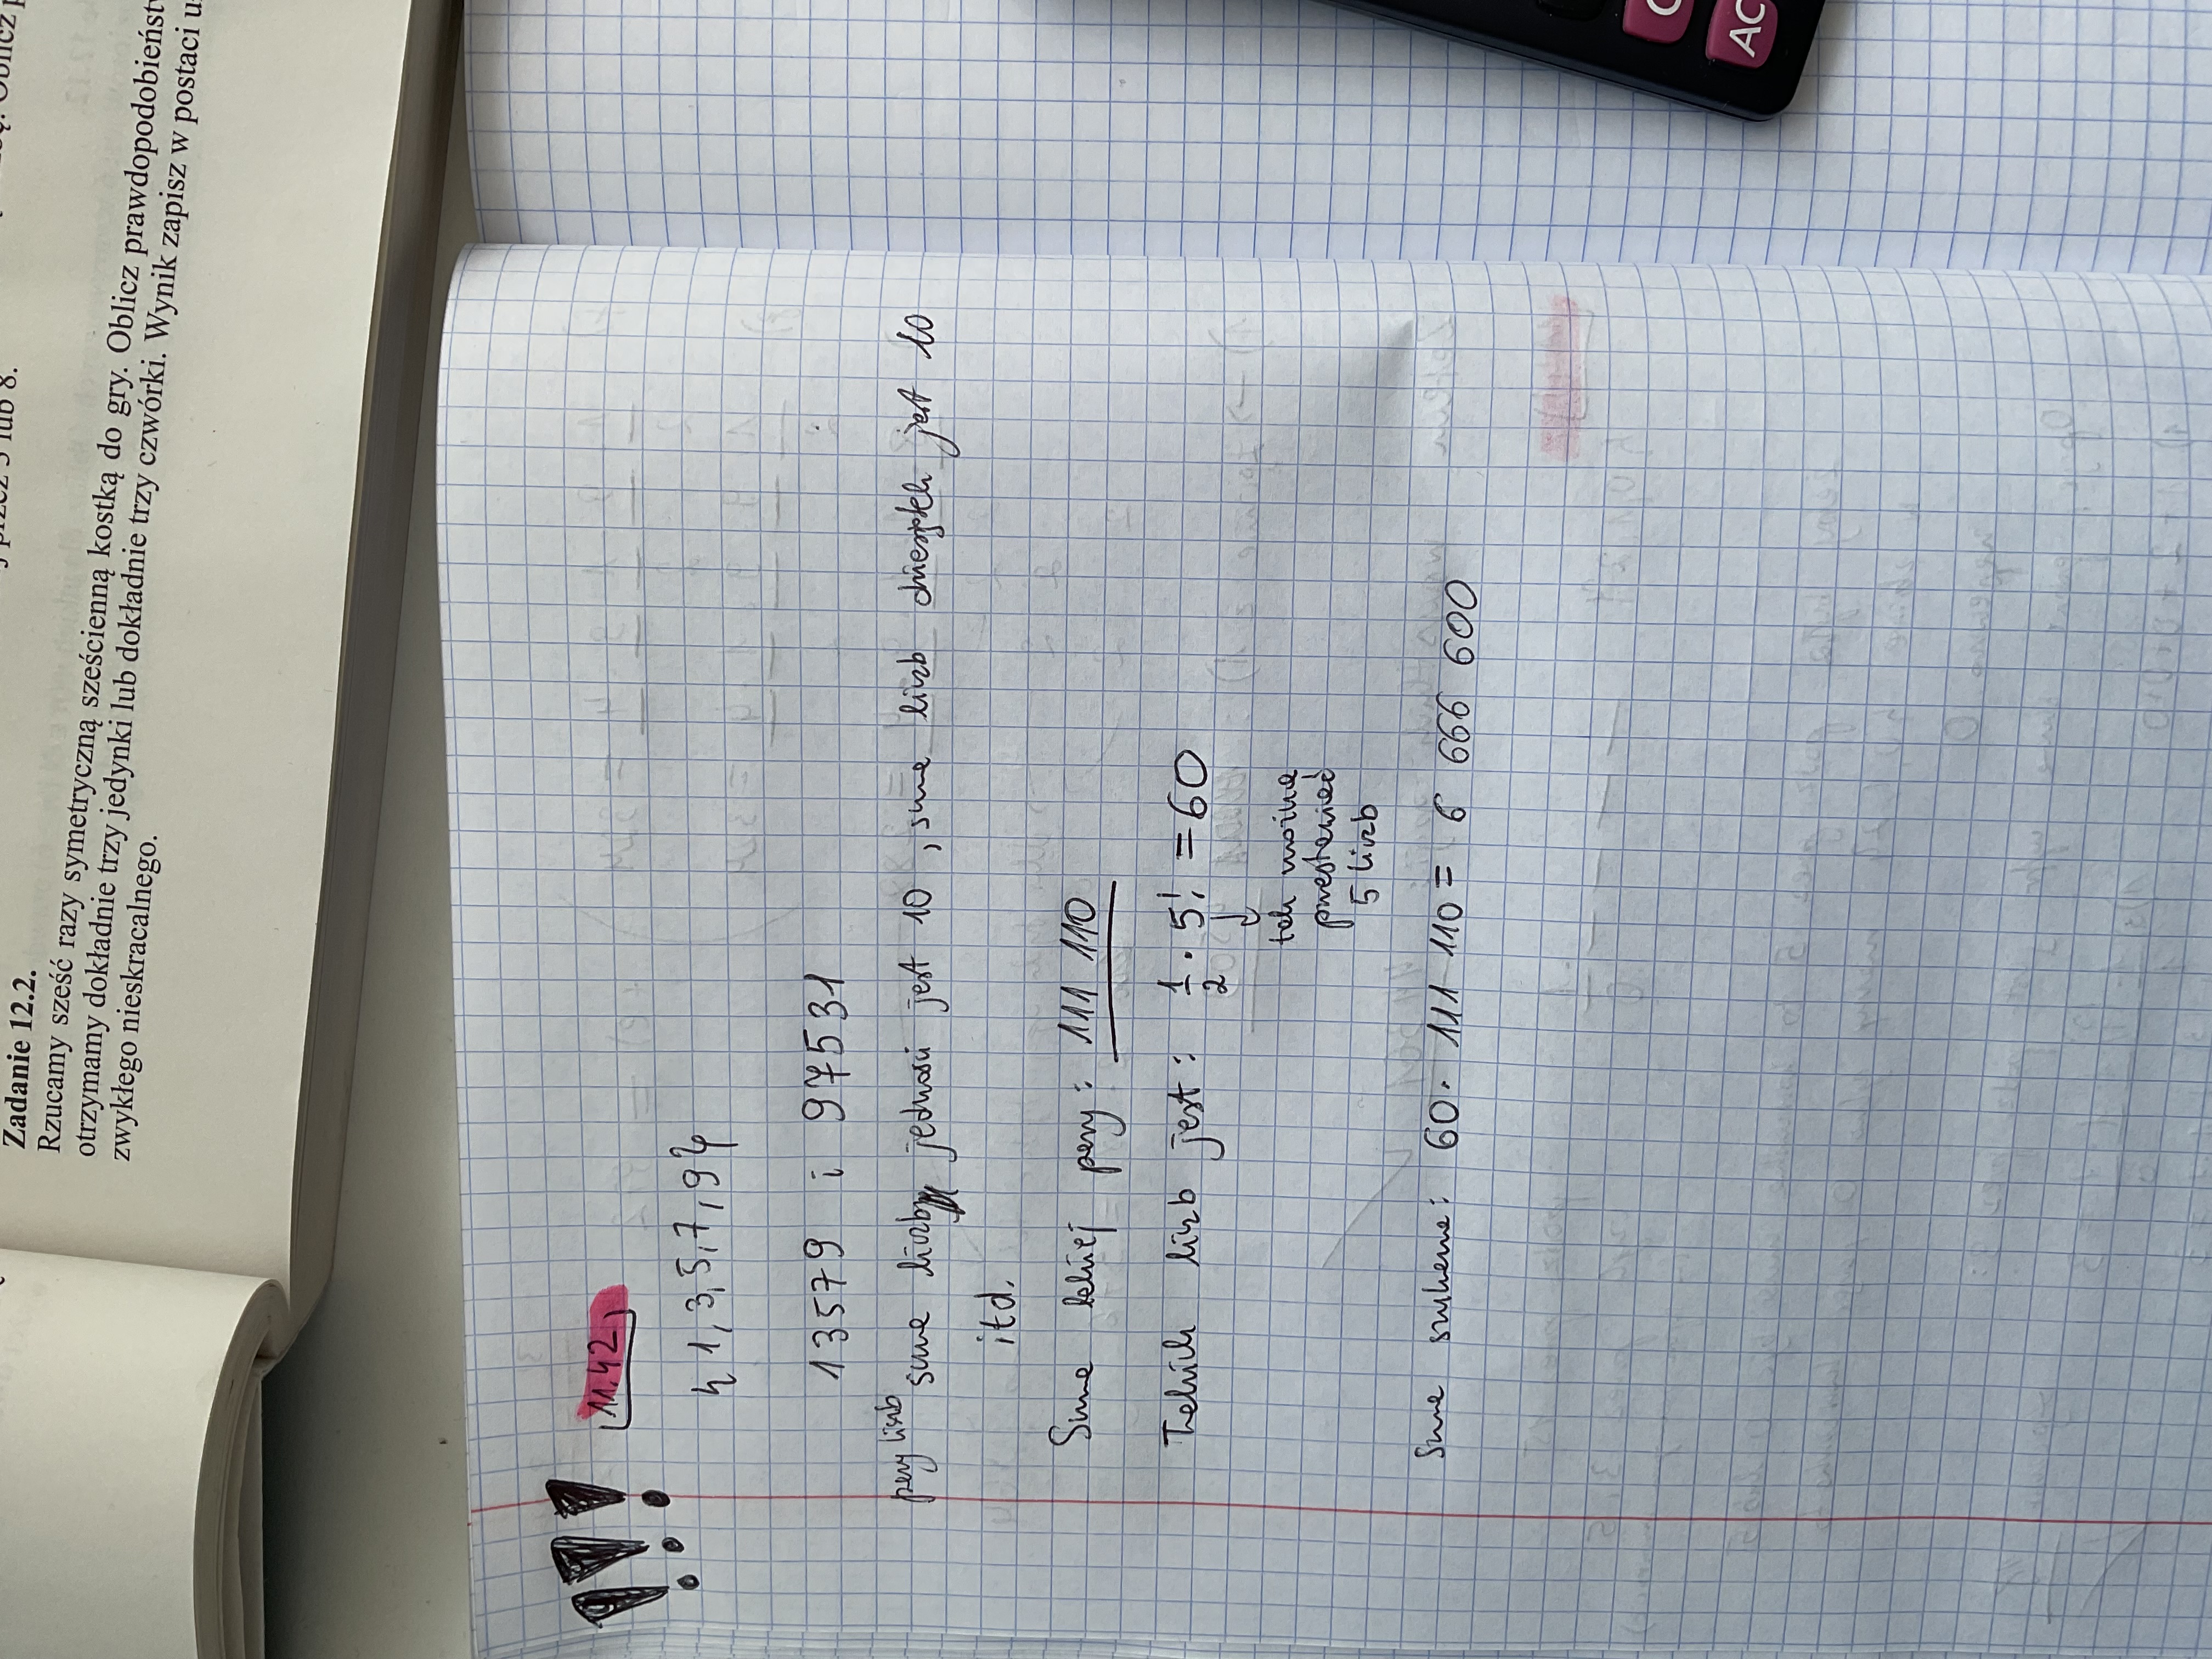 j przez 5 lub 8.
Zadanie 12.2.
Rzucamy sześć razy symetryczną sześcienną kostką do gry. Oblicz prawdopodobieńst
otrzymamy dokładnie trzy jedynki lub dokładnie trzy czwórki. Wynik zapisz w postaci u
zwykłego nieskracalnego.
C
AC
!!! 11.42
{1,3,5,7,9}
13579 i 97531
pary liczb
suma liczby jedności jest 10, suma liczb dziesiątek jest 10
itd.
Suma takiej pary: 111 110
Takich liczb jest: 1/2 · 5! = 60
tak można
przestawiać
5 liczb
Suma szukana: 60 · 111 110 = 6 666 600